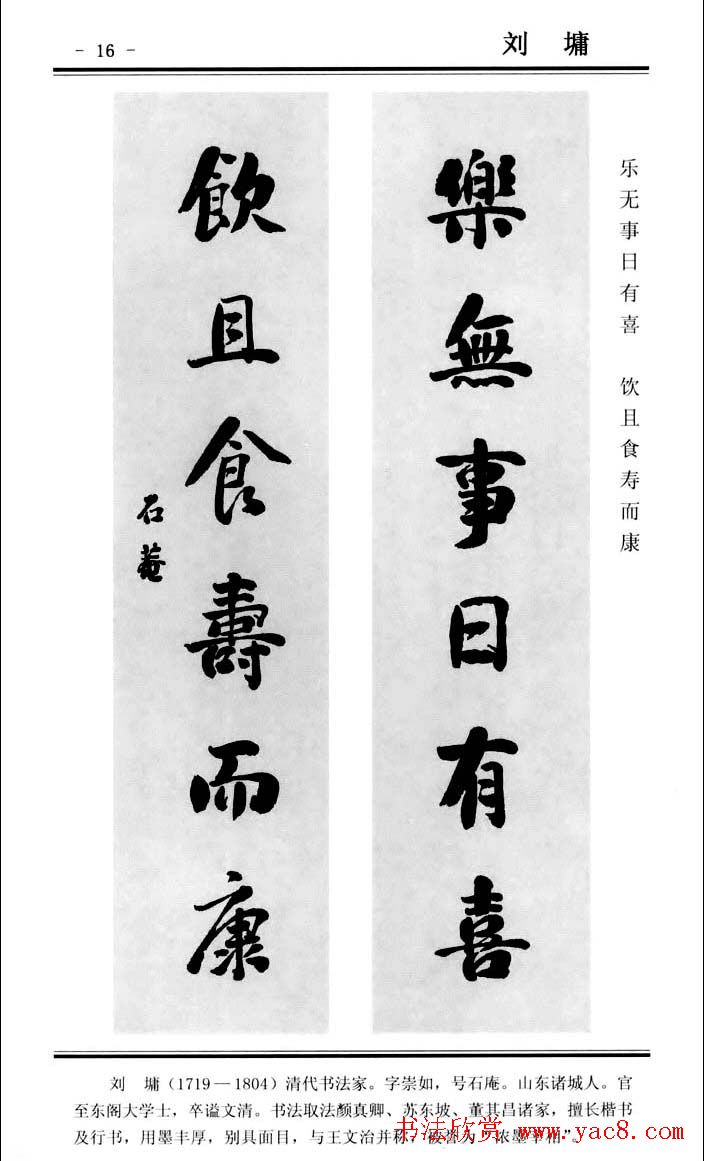 - 16 -
刘 墉
乐无事日有喜 饮且食寿而康
樂無事日有喜
飲且食壽而康
石菴
刘 墉(1719—1804)清代书法家。字崇如,号石庵。山东诸城人。官
至东阁大学士,卒谥文清。书法取法颜真卿、苏东坡、董其昌诸家,擅长楷书
及行书,用墨丰厚,别具面目,与王文治并称,被誉为“浓墨宰相”。
书法欣赏 www.yac8.com